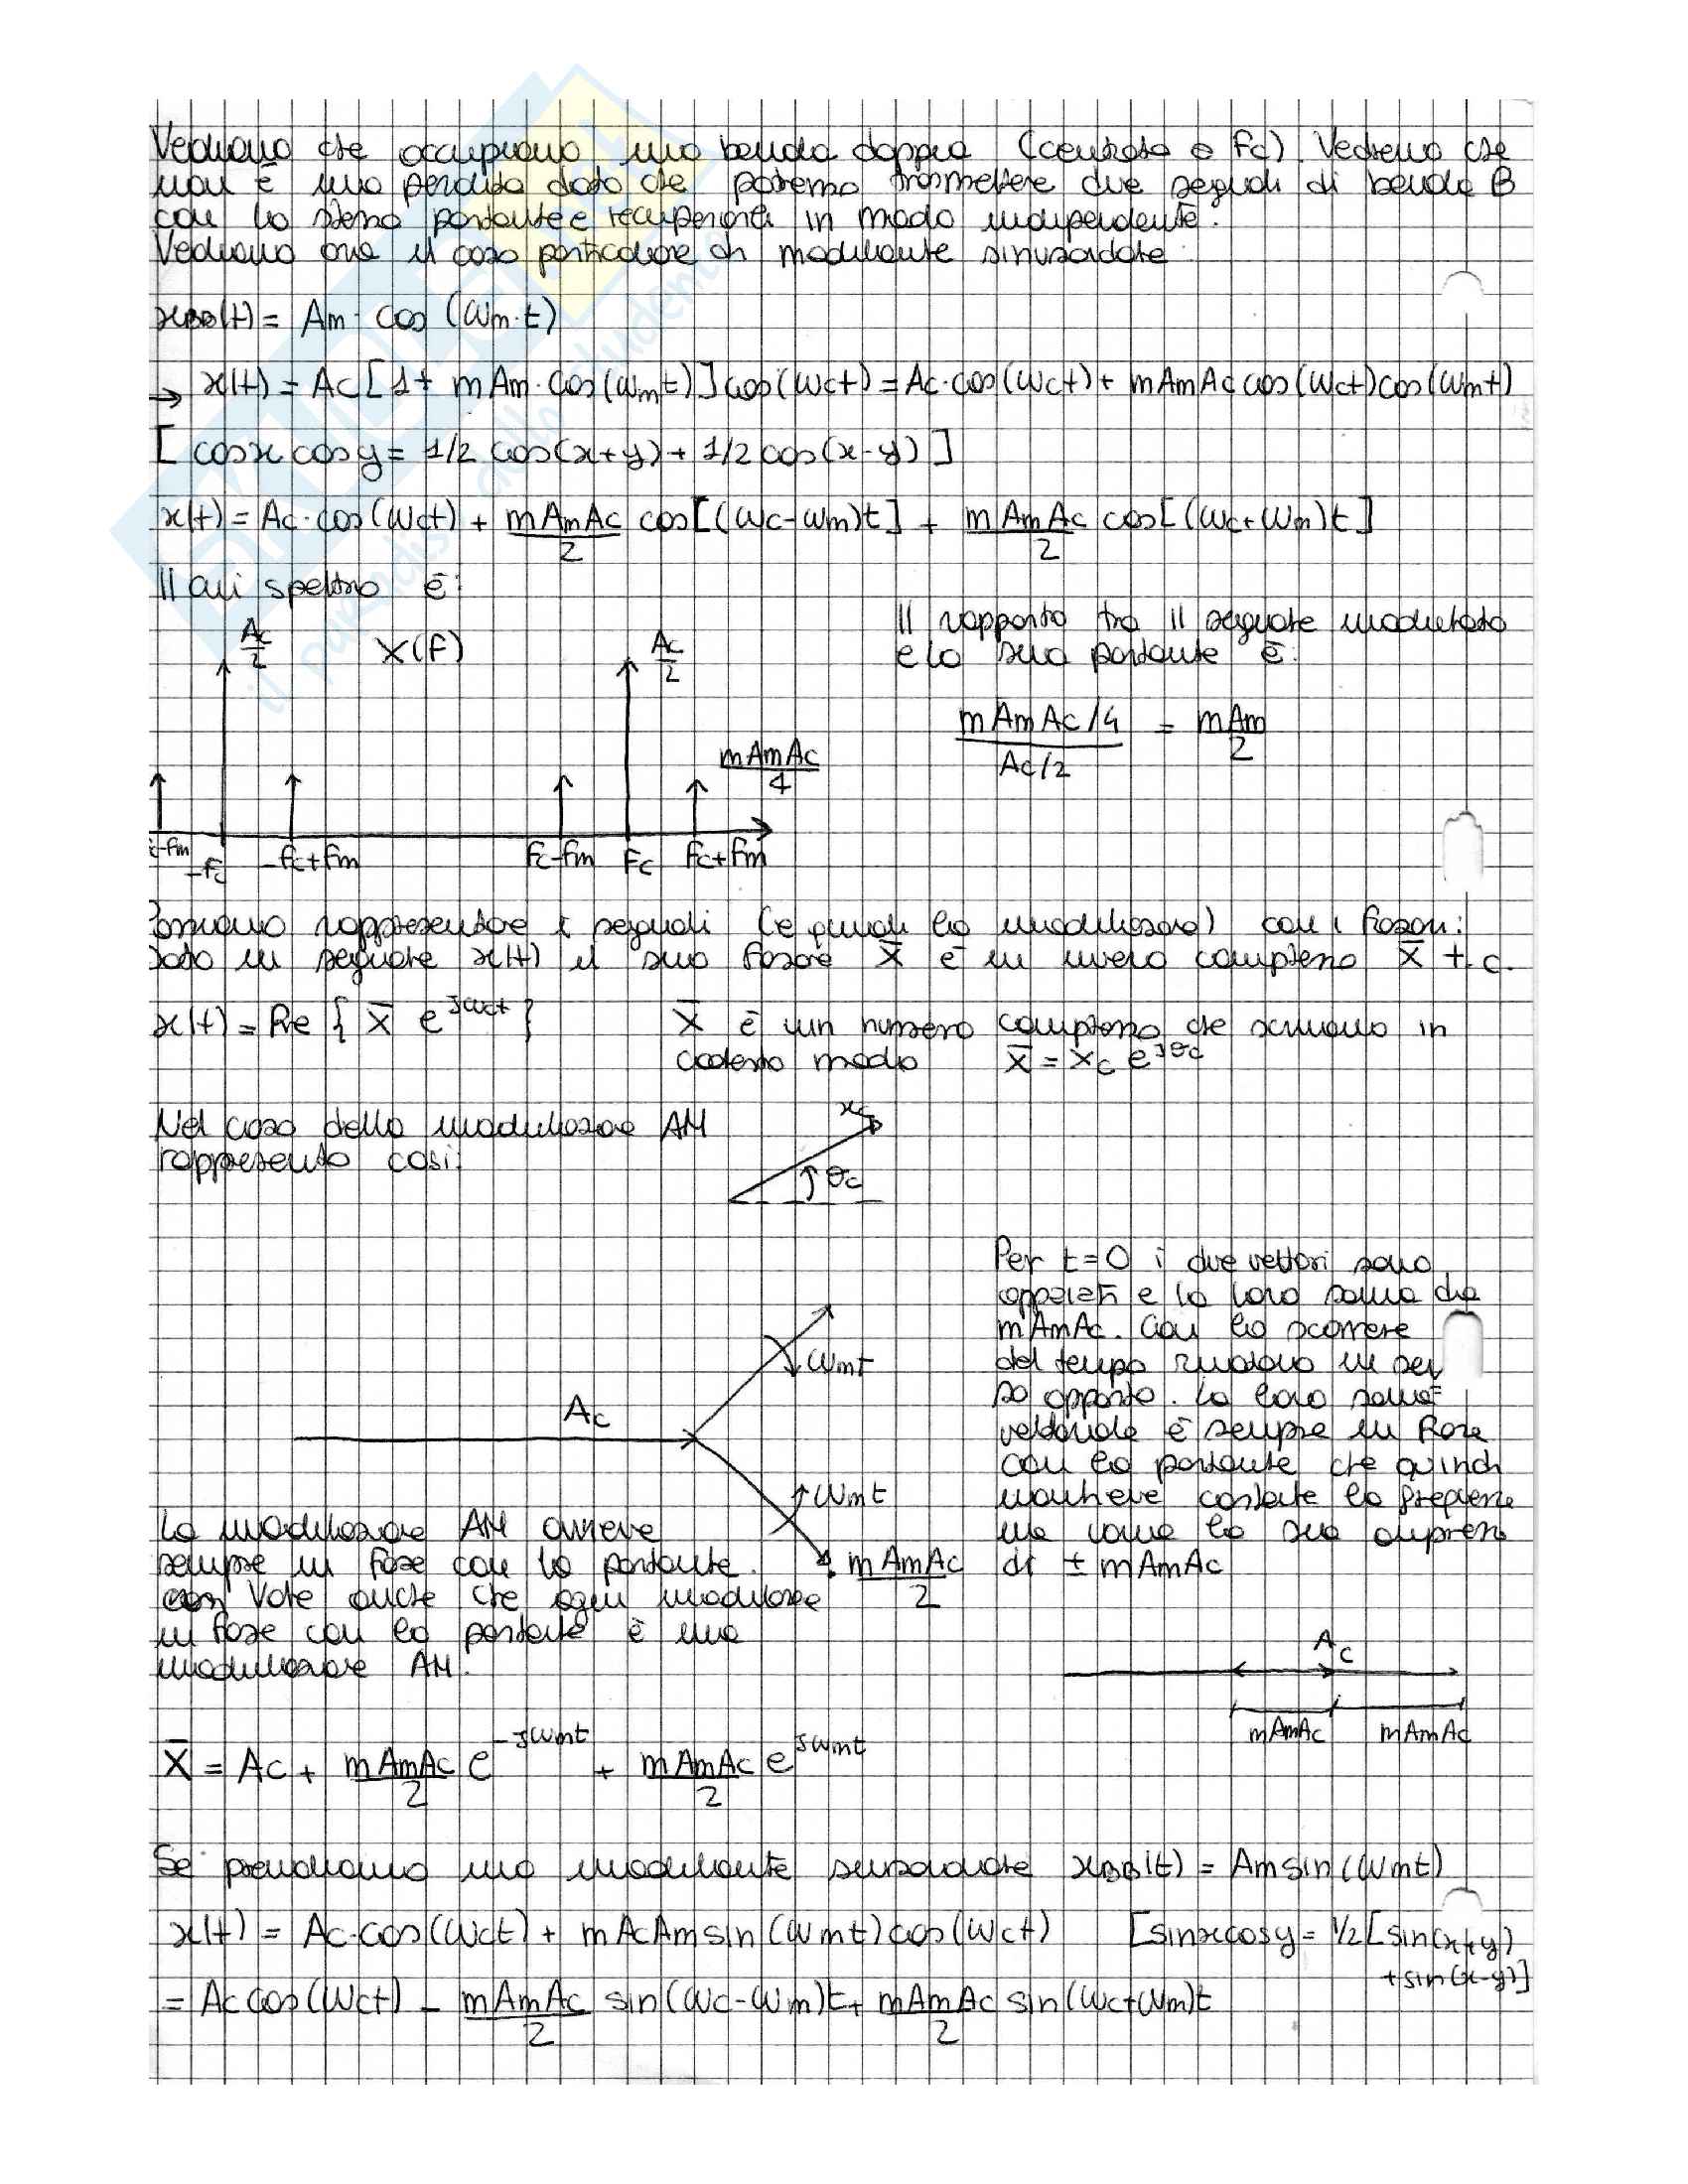 Vediamo che occupiamo una banda doppia (centrata a Fc). Vedremo che
non è una perdita dato che potremo trasmettere due segnali di banda B
con la stessa portante e recuperarli in modo indipendente.
Vediamo ora il caso particolare di modulante sinusoidale
xBB(t) = Am · cos (ωm·t)
→ x(t) = Ac [1 + mAm·cos(ωmt)] cos(ωct) = Ac·cos(ωct) + mAmAc cos(ωct)cos(ωmt)
[ cosx cosy = 1/2 cos(x+y) + 1/2 cos(x-y) ]
x(t) = Ac·cos(ωct) + mAmAc/2 cos[(ωc-ωm)t] + mAmAc/2 cos[(ωc+ωm)t]
Il cui spettro è:
Ac/2 X(F) Ac/2
mAmAc/4
c-fm -fc -fc+fm fc-fm fc fc+fm
Il rapporto tra il segnale modulato
e la sua portante è:
mAmAc/4 / Ac/2 = mAm/2
Possiamo rappresentare i segnali (e quindi la modulazione) con i fasori:
dato un segnale x(t) il suo fasore X̄ è un numero complesso X̄ t.c.
x(t) = Re { X̄ e^jωct }
X̄ è un numero complesso che scriviamo in
codesto modo X̄ = xc e^jθc
Nel caso della modulazione AM
rappresento così:
xc
θc
Per t=0 i due vettori sono
opposti e la loro somma dà
mAmAc. Con lo scorrere
del tempo ruotano in sen
so opposto. La loro somma
vettoriale è sempre in fase
con la portante che quindi
mantiene costante la frequenza
ma varia la sua ampiezza
di ± mAmAc
Ac
ωmt
ωmt
mAmAc/2
La modulazione AM avviene
sempre in fase con la portante.
Vale anche che ogni modulazione
in fase con la portante è una
modulazione AM.
Ac
mAmAc mAmAc
X̄ = Ac + mAmAc/2 e^-jωmt + mAmAc/2 e^jωmt
Se prendiamo una modulante sinusoidale xBB(t) = Am sin(ωmt)
x(t) = Ac·cos(ωct) + mAcAm sin(ωmt)cos(ωct) [sinxcosy = 1/2[sin(x+y)
+sin(x-y)]
= Ac cos(ωct) - mAmAc/2 sin(ωc-ωm)t + mAmAc/2 sin(ωc+ωm)t